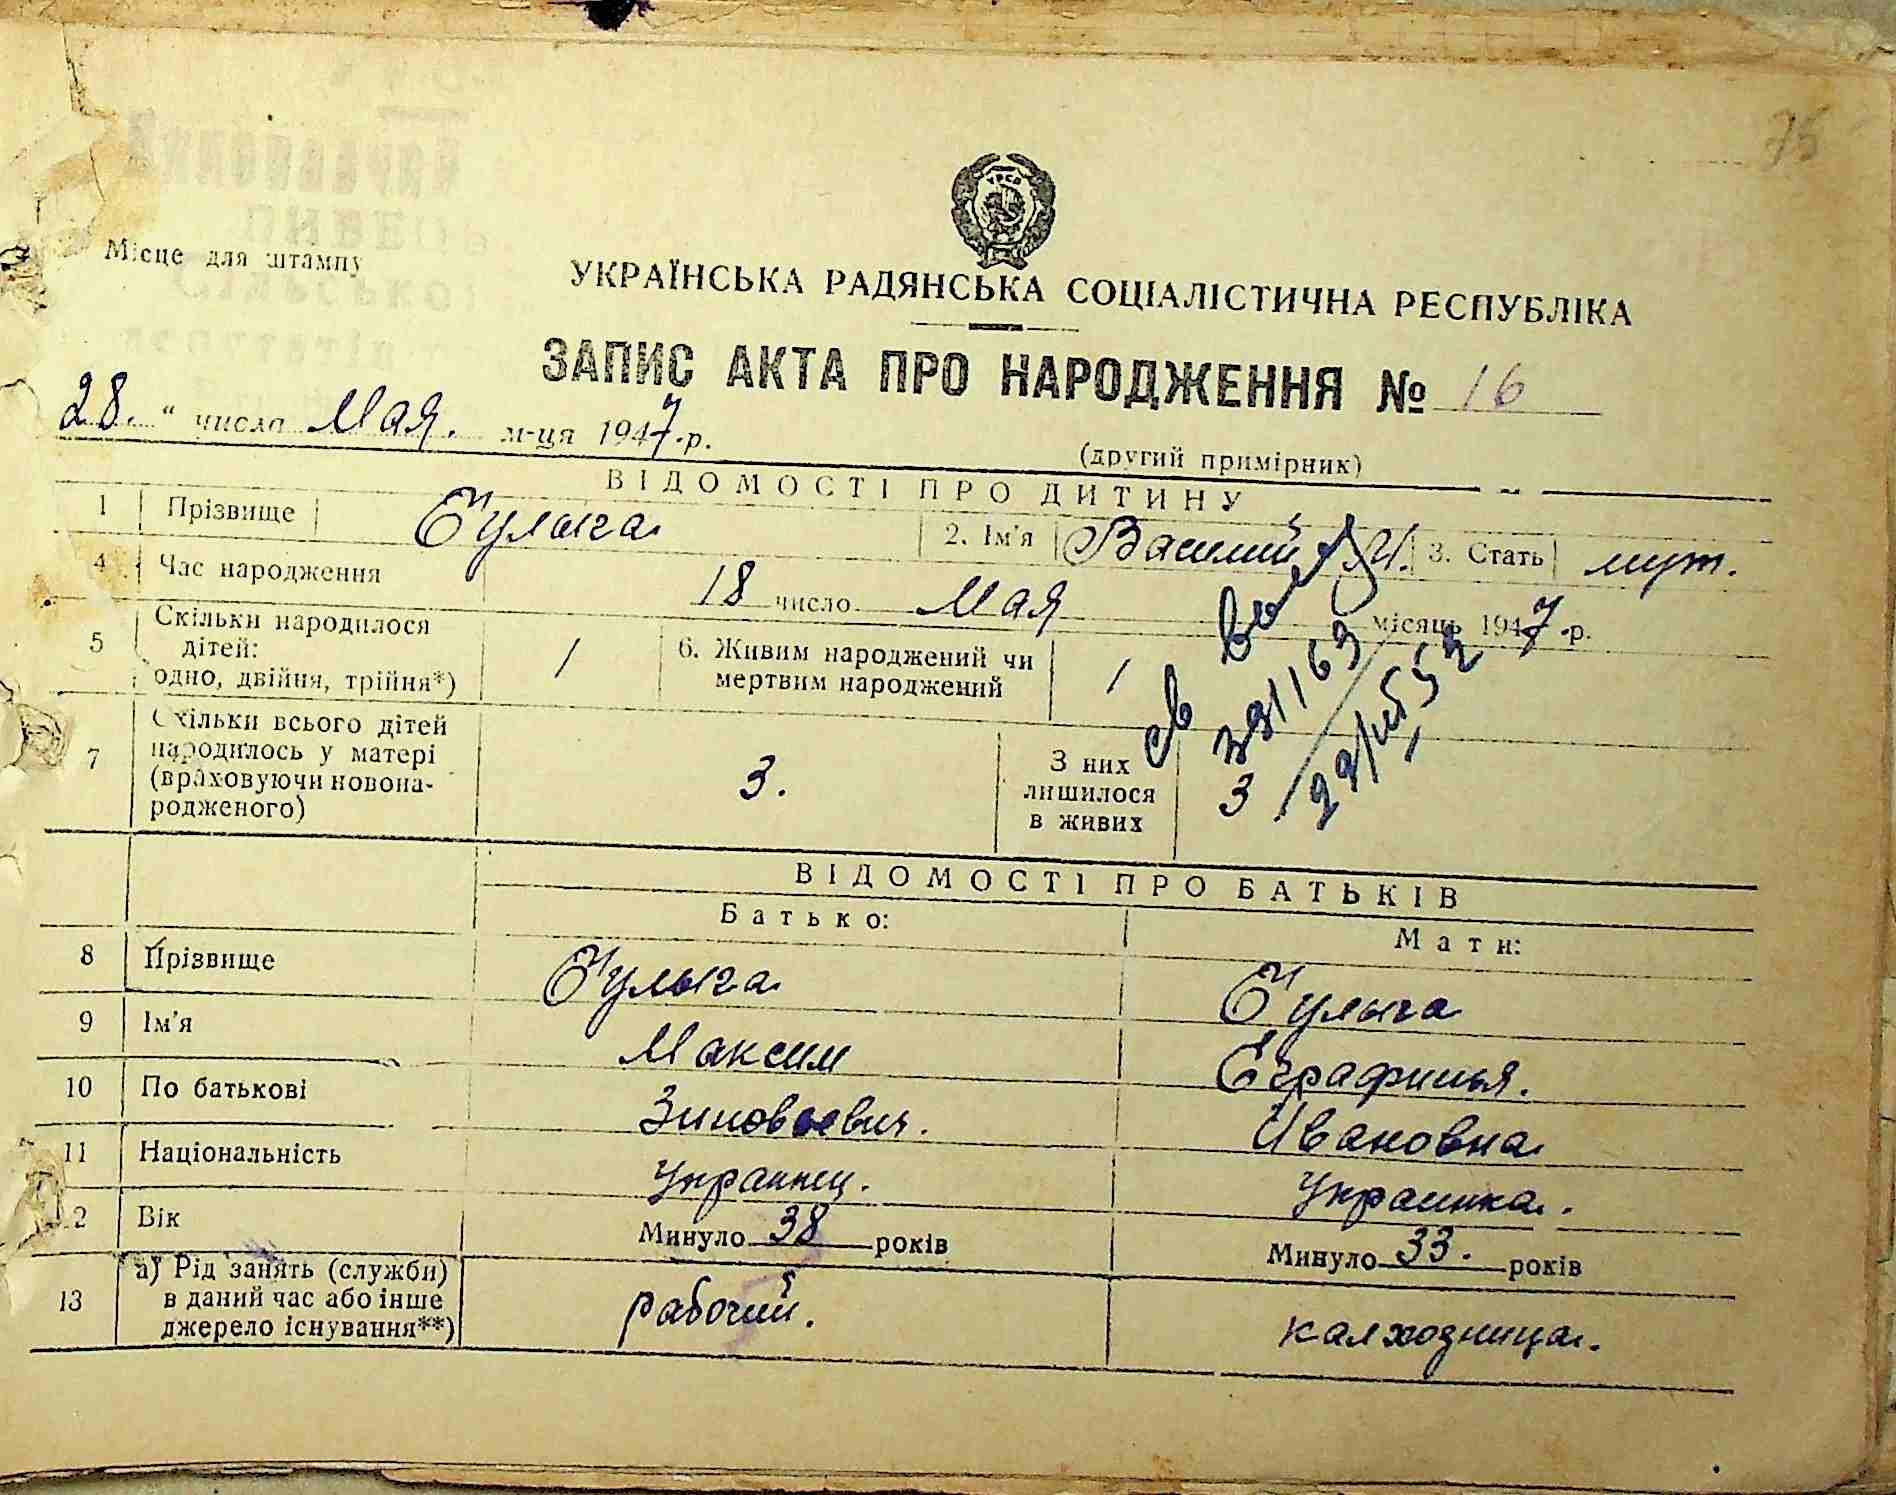 75
УРСР
Місце для штампу
УКРАЇНСЬКА РАДЯНСЬКА СОЦІАЛІСТИЧНА РЕСПУБЛІКА
ЗАПИС АКТА ПРО НАРОДЖЕННЯ № 16
28. " числа Мая. м-ця 1947 р.
(другий примірник)
ВІДОМОСТІ ПРО ДИТИНУ
1 Прізвище Гулыга 2. Ім'я Василий 3. Стать муж.
4 Час народження 18 число Мая місяць 1947 р.
5 Скільки народилося дітей: одно, двійня, трійня*) 1 6. Живим народжений чи мертвим народжений 1
7 Скільки всього дітей народилось у матері (враховуючи новонародженого) 3. З них лишилося в живих 3
ВІДОМОСТІ ПРО БАТЬКІВ
Батько: Мати:
8 Прізвище Гулыга Гулыга
9 Ім'я Максим Еграфинья.
10 По батькові Зиновоевич. Ивановна
11 Національність Украинец. Украинка.
12 Вік Минуло 38 років Минуло 33. років
13 а) Рід занять (служби) в даний час або інше джерело існування**) рабочий. калхозница.